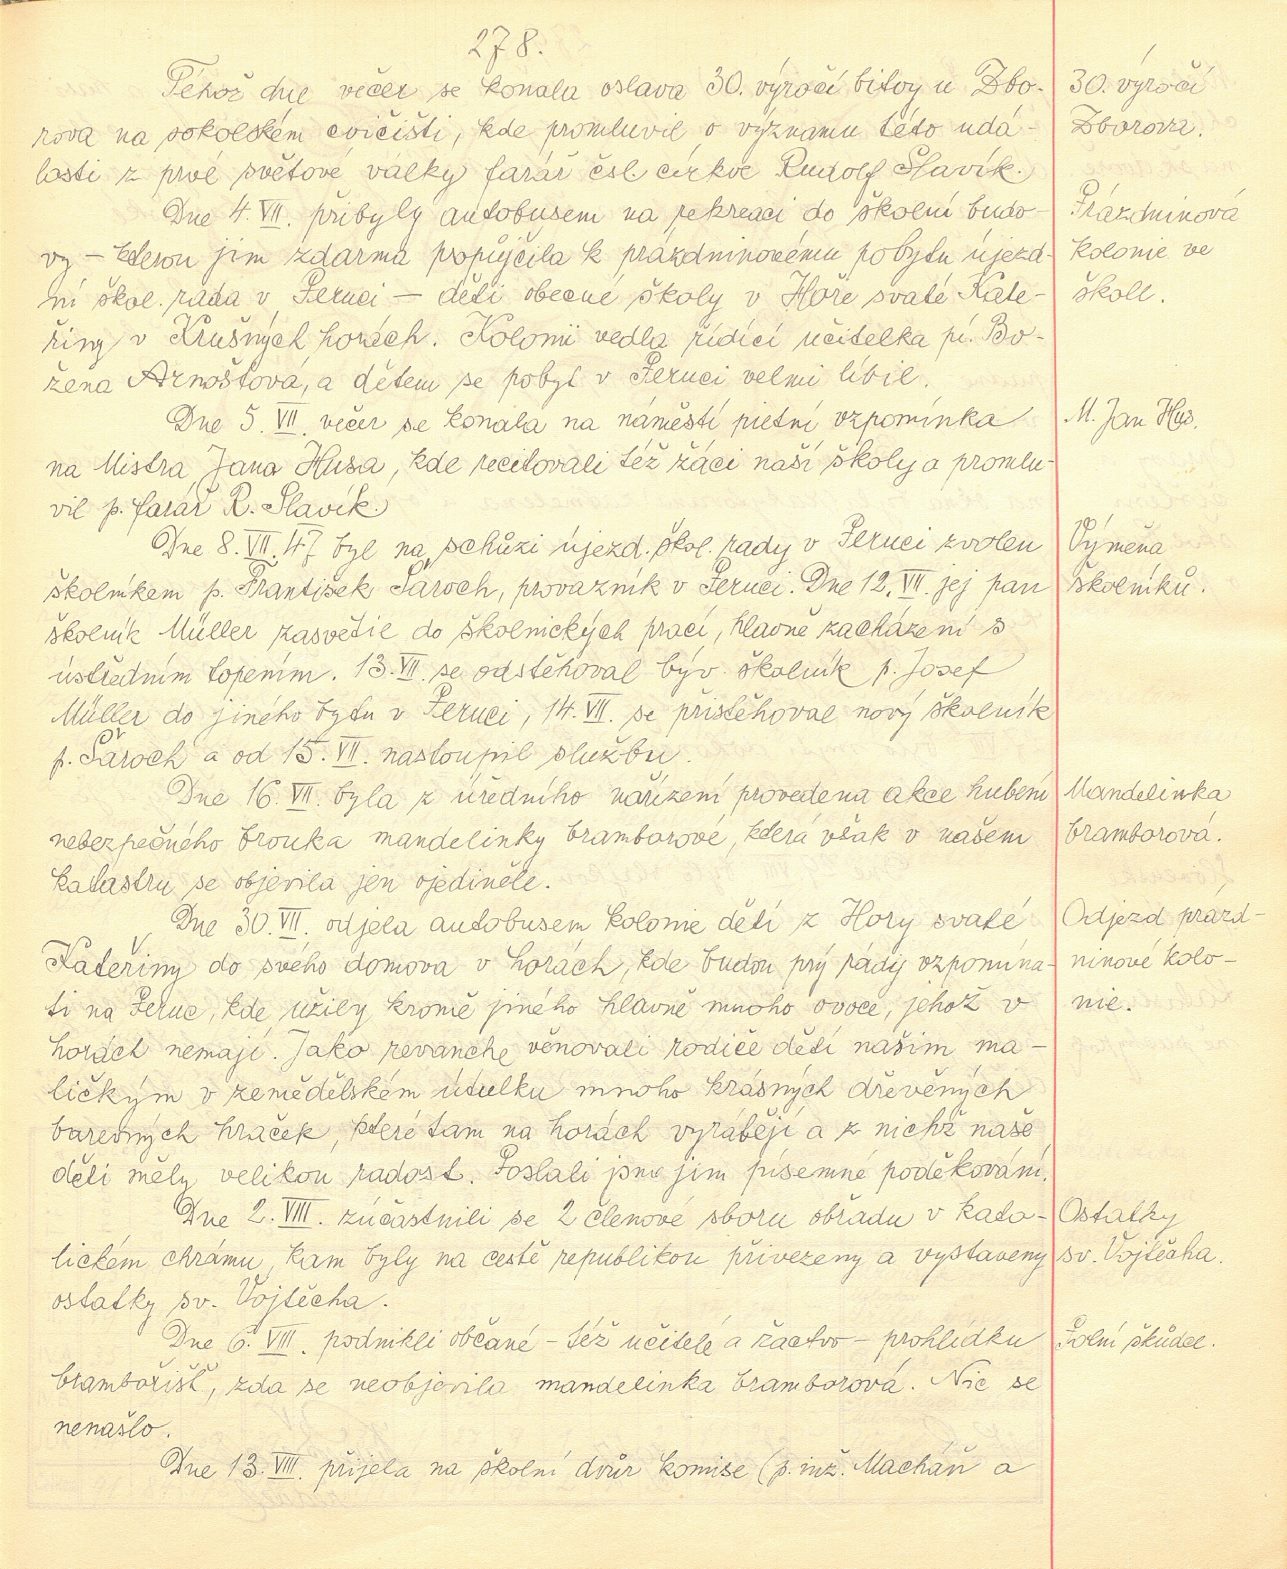 278.
Téhož dne večer se konala oslava 30. výročí bitvy u Zbo-
rova na sokolském cvičišti, kde promluvil o významu této udá-
losti z prvé světové války farář čsl. církve Rudolf Slavík.
30. výročí
Zborova.
Dne 4. VII. přibyly autobusem na rekreaci do školní budo-
vy – kterou jim zdarma propůjčila k prázdninovému pobytu újezd-
ní škol. rada v Peruci – děti obecné školy v Hoře svaté Kate-
řiny v Krušných horách. Kolonii vedla řídící učitelka pí. Bo-
žena Arnoštová, a dětem se pobyt v Peruci velmi líbil.
Prázdninová
kolonie ve
škole.
Dne 5. VII. večer se konala na náměstí pietní vzpomínka
na Mistra Jana Husa, kde recitovali též žáci naší školy a promlu-
vil p. farář R. Slavík.
M. Jan Hus.
Dne 8. VII. 47 byl na schůzi újezd. škol. rady v Peruci zvolen
školníkem p. František Šaroch, provazník v Peruci. Dne 12. VII. jej pan
školník Müller zasvětil do školnických prací, hlavně zacházení s
ústředním topením. 13. VII. se odstěhoval býv. školník p. Josef
Müller do jiného bytu v Peruci, 14. VII. se přistěhoval nový školník
p. Šaroch a od 15. VII. nastoupil službu.
Výměna
školníků.
Dne 16. VII. byla z úředního nařízení provedena akce hubení
nebezpečného brouka mandelinky bramborové, která však v našem
katastru se objevila jen ojediněle.
Mandelinka
bramborová.
Dne 30. VII. odjela autobusem kolonie dětí z Hory svaté
Kateřiny do svého domova v horách, kde budou prý rády vzpomína-
ti na Peruc, kde užily kromě jiného hlavně mnoho ovoce, jehož v
horách nemají. Jako revanche věnovali rodiče dětí našim ma-
ličkým v zemědělském útulku mnoho krásných dřevěných
barevných hraček, které tam na horách vyrábějí a z nichž naše
děti měly velikou radost. Poslali jsme jim písemné poděkování.
Odjezd prázd-
ninové kolo-
nie.
Dne 2. VIII. zúčastnili se 2 členové sboru obřadu v kato-
lickém chrámu, kam byly na cestě republikou přivezeny a vystaveny
ostatky sv. Vojtěcha.
Ostatky
sv. Vojtěcha.
Dne 6. VIII. podnikli občané – též učitelé a žactvo – prohlídku
bramborišť, zda se neobjevila mandelinka bramborová. Nic se
nenašlo.
Polní škůdce.
Dne 13. VIII. přijela na školní dvůr komise (p. inž. Macháň a